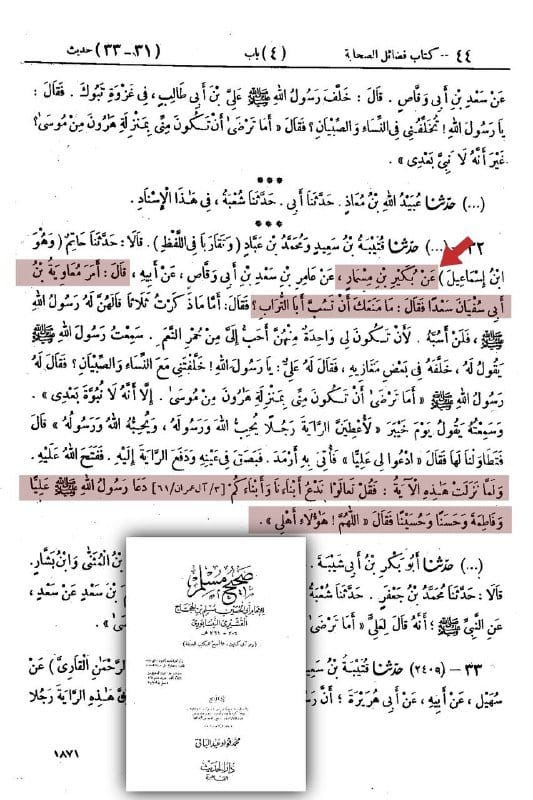 ٤٤ -- كتاب فضائل الصحابة (٤) باب (٣١-٣٣) حديث
عَنْ سَعْدِ بْنِ أَبِي وَقَّاصٍ. قَالَ: خَلَّفَ رَسُولُ اللهِ ﷺ عَلِيَّ بْنَ أَبِي طَالِبٍ، فِي غَزْوَةِ تَبُوكَ. فَقَالَ:
يَا رَسُولَ اللهِ! تُخَلِّفُنِي فِي النِّسَاءِ وَالصِّبْيَانِ؟ فَقَالَ « أَمَا تَرْضَىٰ أَنْ تَكُونَ مِنِّي بِمَنْزِلَةِ هَارُونَ مِنْ مُوسَىٰ؟
غَيْرَ أَنَّهُ لَا نَبِيَّ بَعْدِي ».
(...) حَدَّثَنَا عُبَيْدُ اللهِ بْنُ مُعَاذٍ. حَدَّثَنَا أَبِي. حَدَّثَنَا شُعْبَةُ، فِي هَٰذَا الْإِسْنَادِ.
٣٢ - (...) حَدَّثَنَا قُتَيْبَةُ بْنُ سَعِيدٍ وَمُحَمَّدُ بْنُ عَبَّادٍ (وَتَقَارَبَا فِي اللَّفْظِ). قَالَا: حَدَّثَنَا حَاتِمٌ (وَهُوَ
ابْنُ إِسْمَاعِيلَ) عَنْ بُكَيْرِ بْنِ مِسْمَارٍ، عَنْ عَامِرِ بْنِ سَعْدِ بْنِ أَبِي وَقَّاصٍ، عَنْ أَبِيهِ، قَالَ: أَمَرَ مُعَاوِيَةُ بْنُ
أَبِي سُفْيَانَ سَعْدًا فَقَالَ: مَا مَنَعَكَ أَنْ تَسُبَّ أَبَا التُّرَابِ؟ فَقَالَ: أَمَّا مَا ذَكَرْتُ ثَلَاثًا قَالَهُنَّ لَهُ رَسُولُ اللهِ
ﷺ، فَلَنْ أَسُبَّهُ. لَأَنْ تَكُونَ لِي وَاحِدَةٌ مِنْهُنَّ أَحَبُّ إِلَيَّ مِنْ حُمْرِ النَّعَمِ. سَمِعْتُ رَسُولَ اللهِ ﷺ
يَقُولُ لَهُ، خَلَّفَهُ فِي بَعْضِ مَغَازِيهِ، فَقَالَ لَهُ عَلِيٌّ: يَا رَسُولَ اللهِ! خَلَّفْتَنِي مَعَ النِّسَاءِ وَالصِّبْيَانِ؟ فَقَالَ لَهُ
رَسُولُ اللهِ ﷺ « أَمَا تَرْضَىٰ أَنْ تَكُونَ مِنِّي بِمَنْزِلَةِ هَارُونَ مِنْ مُوسَىٰ. إِلَّا أَنَّهُ لَا نُبُوَّةَ بَعْدِي ».
وَسَمِعْتُهُ يَقُولُ يَوْمَ خَيْبَرَ « لَأُعْطِيَنَّ الرَّايَةَ رَجُلًا يُحِبُّ اللهَ وَرَسُولَهُ، وَيُحِبُّهُ اللهُ وَرَسُولُهُ » قَالَ
فَتَطَاوَلْنَا لَهَا فَقَالَ « ادْعُوا لِي عَلِيًّا » فَأُتِيَ بِهِ أَرْمَدَ. فَبَصَقَ فِي عَيْنِهِ وَدَفَعَ الرَّايَةَ إِلَيْهِ. فَفَتَحَ اللهُ عَلَيْهِ.
وَلَمَّا نَزَلَتْ هَٰذِهِ الْآيَةُ: فَقُلْ تَعَالَوْا نَدْعُ أَبْنَاءَنَا وَأَبْنَاءَكُمْ [٣/آل عمران/٦١] دَعَا رَسُولُ اللهِ ﷺ عَلِيًّا
وَفَاطِمَةَ وَحَسَنًا وَحُسَيْنًا فَقَالَ « اللَّهُمَّ! هَٰؤُلَاءِ أَهْلِي ».
(...) حَدَّثَنَا أَبُو بَكْرِ بْنُ أَبِي شَيْبَةَ. بْنُ الْمُثَنَّى وَابْنُ بَشَّارٍ.
قَالَا: حَدَّثَنَا مُحَمَّدُ بْنُ جَعْفَرٍ. حَدَّثَنَا شُعْبَةُ، مَ بْنَ سَعْدٍ عَنْ سَعْدٍ،
عَنِ النَّبِيِّ ﷺ؛ أَنَّهُ قَالَ لِعَلِيٍّ « أَمَا تَرْضَىٰ مُوسَىٰ ».
٣٣ - (٢٤٠٩) حَدَّثَنَا قُتَيْبَةُ بْنُ سَعِيدٍ الرَّحْمَٰنِ الْقَارِيَّ) عَنْ
سُهَيْلٍ، عَنْ أَبِيهِ، عَنْ أَبِي هُرَيْرَةَ؛ أَنَّ رَسُولَ هَٰذِهِ الرَّايَةَ رَجُلًا
١٨٧١
صحيح مسلم
للإمام أبي الحسين مسلم بن الحجاج
القشيري النيسابوري
٢٠٦ - ٢٦١ هـ
محمد فؤاد عبد الباقي
دار الحديث
القاهرة